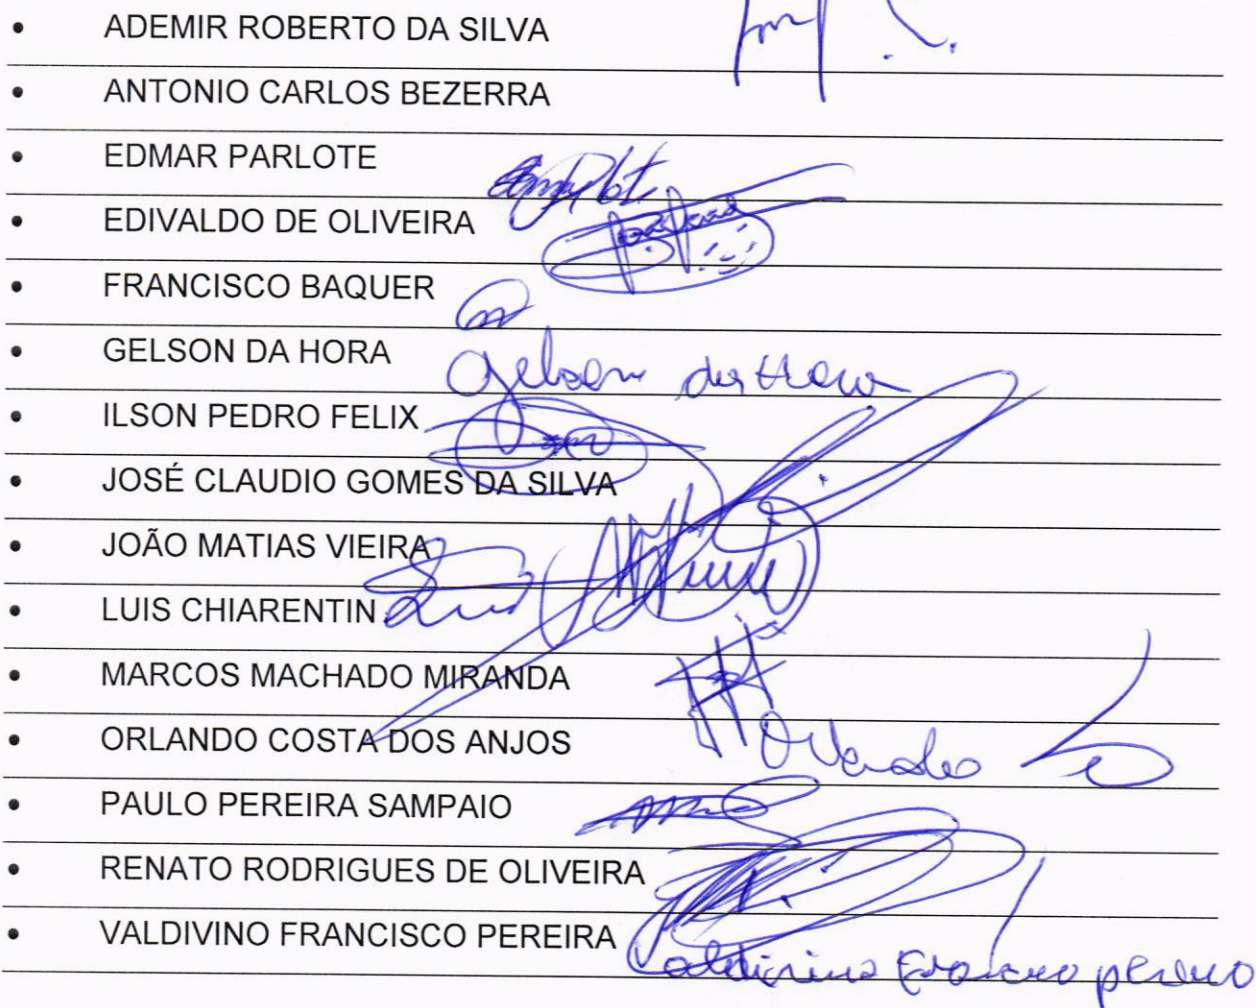 • ADEMIR ROBERTO DA SILVA
• ANTONIO CARLOS BEZERRA
• EDMAR PARLOTE
• EDIVALDO DE OLIVEIRA
• FRANCISCO BAQUER
• GELSON DA HORA Gelson da Hora
• ILSON PEDRO FELIX
• JOSÉ CLAUDIO GOMES DA SILVA
• JOÃO MATIAS VIEIRA
• LUIS CHIARENTIN Luis
• MARCOS MACHADO MIRANDA
• ORLANDO COSTA DOS ANJOS Orlando
• PAULO PEREIRA SAMPAIO
• RENATO RODRIGUES DE OLIVEIRA
• VALDIVINO FRANCISCO PEREIRA